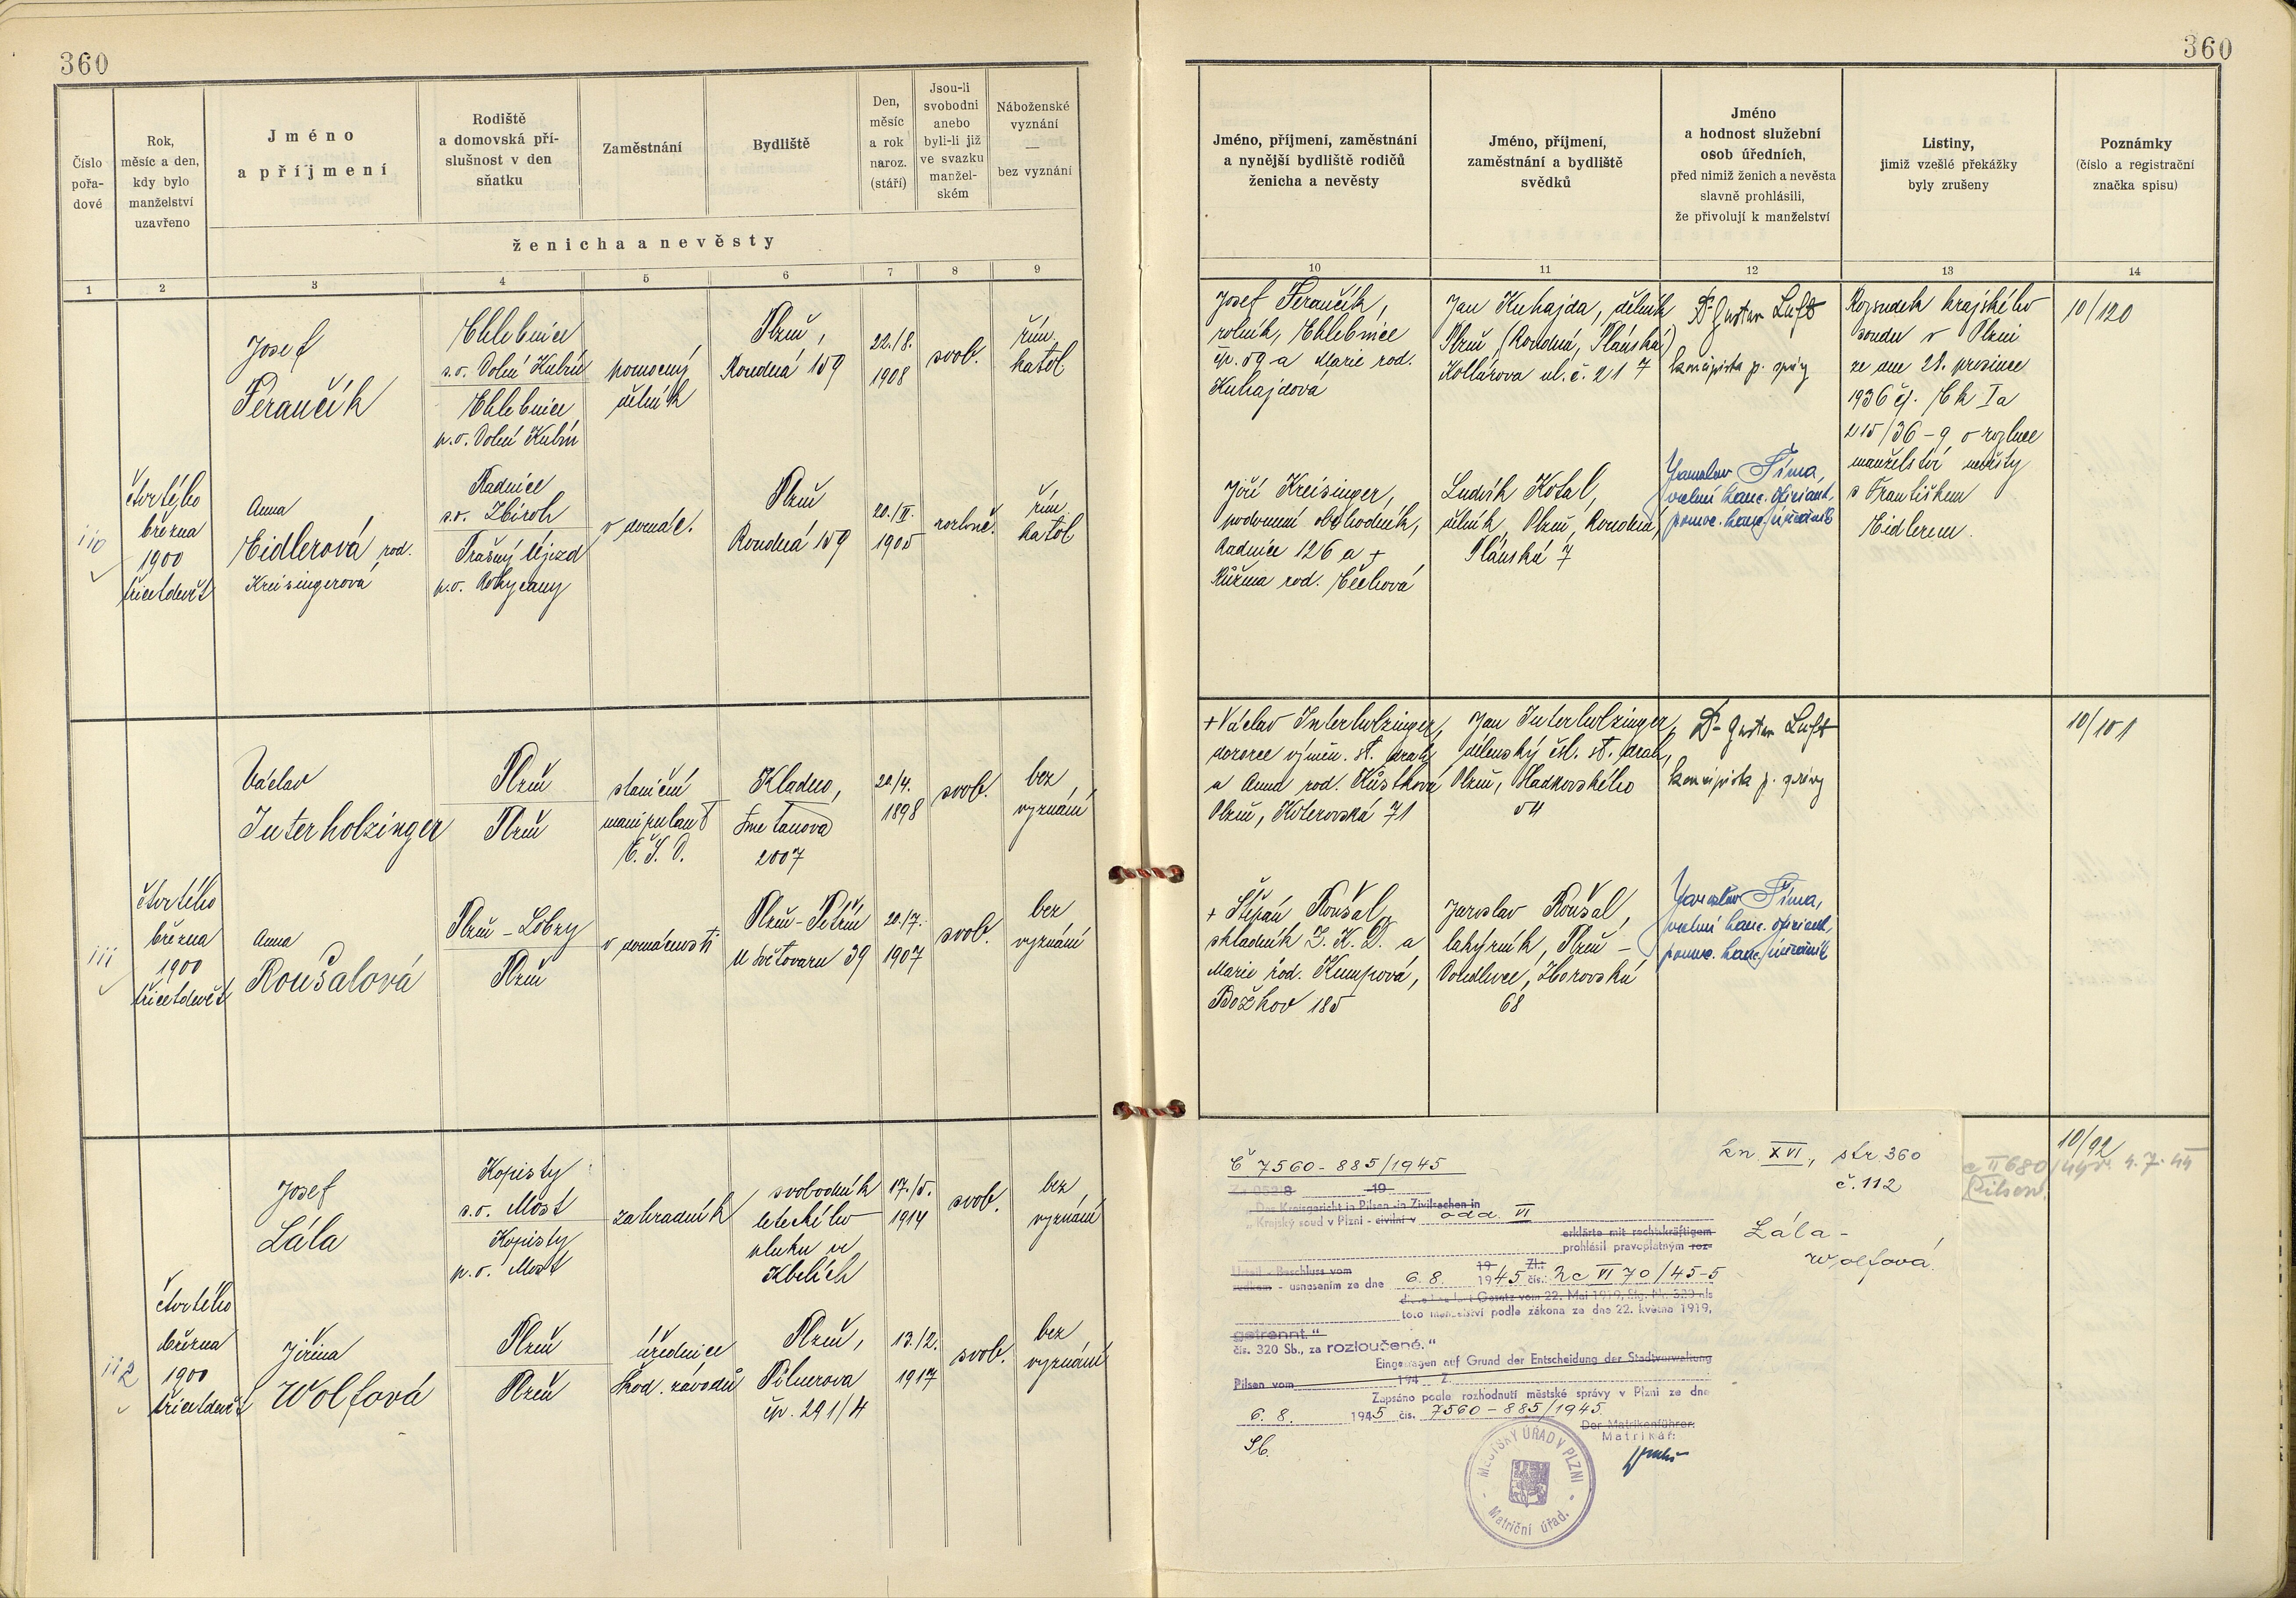 360
360
Číslo
pořa-
dové
Rok,
měsíc a den,
kdy bylo
manželství
uzavřeno
Jméno
a příjmení
Rodiště
a domovská pří-
slušnost v den
sňatku
Zaměstnání
Bydliště
Den,
měsíc
a rok
naroz.
(stáří)
Jsou-li
svobodni
anebo
byli-li již
ve svazku
manžel-
ském
Náboženské
vyznání
—
bez vyznání
ženicha a nevěsty
Jméno, příjmení, zaměstnání
a nynější bydliště rodičů
ženicha a nevěsty
Jméno, příjmení,
zaměstnání a bydliště
svědků
Jméno
a hodnost služební
osob úředních,
před nimiž ženich a nevěsta
slavně prohlásili,
že přivolují k manželství
Listiny,
jimiž vzešlé překážky
byly zrušeny
Poznámky
(číslo a registrační
značka spisu)
1 2 3 4 5 6 7 8 9
10 11 12 13 14
110
čtvrtého
března
1900
třicetdevět
Josef
Perančík
Chlebnice
s.o. Dolní Kubín
Chlebnice
p.o. Dolní Kubín
pomocný
dělník
Plzeň,
Roudná 159
22./8.
1908
svob.
řím.
katol
Anna
Eidlerová rod.
Kreisingerová
Radnice
s.o. Zbiroh
Prašný Újezd
p.o. Rokycany
v domác.
Plzeň
Roudná 159
20./II.
1905
rozlouč.
řím.
katol
Josef Perančík,
rolník, Chlebnice
čp. 59 a Marie rod.
Kuhajdová
Jan Kuhajda, dělník
Plzeň, (Roudná, Plánská)
Kollárova ul. č. 21 7
Dr Gustav Luft
koncipista p. správy
Rozsudek krajského
soudu v Plzni
ze dne 21. prosince
1936 čj. Ck Ia
215/36-9 o rozluce
manželství nevěsty
s Františkem
Eidlerem.
10/120
Jiří Kreisinger,
podomní obchodník,
Radnice 126 a +
Růžena rod. Čechová
Ludvík Kotal,
dělník, Plzeň, Roudná,
Plánská 7
Jaroslav Fíma,
ředit. kanc. oficiant,
pomoc. kanc. úředník
111
čtvrtého
března
1900
třicetdevět
Václav
Interholzinger
Plzeň
Plzeň
staniční
manipulant
Č. S. D.
Kladno,
Smetanova
2007
20./4.
1898
svob.
bez
vyznání
Anna
Roušalová
Plzeň-Lobzy
Plzeň
v domácnosti
Plzeň-Petřín
U Světovaru 39
20./7.
1907
svob.
bez
vyznání
+ Václav Interholzinger,
dozorce výměn. st. drah
a Anna rod. Růstková
Plzeň, Koterovská 71
Jan Interholzinger,
dílenský čsl. st. drah,
Plzeň, Sladkovského
54
Dr Gustav Luft
koncipista p. správy
10/101
+ Štěpán Roušal,
skladník Z. K. D. a
Marie rod. Kumpová,
Božkov 185
Jaroslav Roušal,
lahýrník, Plzeň -
Doudlevce, Zborovská
68
Jaroslav Fíma,
ředit. kanc. oficiant,
pomoc. kanc. úředník
112
čtvrtého
března
1900
třicetdevět
Josef
Lála
Kopisty
s.o. Most
Kopisty
p.o. Most
zahradník
svobodník
leteckého
pluku ve
Kbelích
17./5.
1914
svob.
bez
vyznání
Jiřina
Wolfová
Plzeň
Plzeň
úřednice
Škod. závodů
Plzeň,
Pölnerova
čp. 291/4
13./2.
1917
svob.
bez
vyznání
10/92
Pilsen.
Č 7560-885/1945
kn. XVI, str. 360
č. 112
Lála-
Wolfová.
Das Kreisgericht in Pilsen in Zivilsachen in
„Krajský soud v Plzni - civilní v odd. VI
erklärte mit rechtskräftigem
prohlásil pravoplatným roz-
Urteil - Beschluss vom 19 Zl.:
sudkem - usnesením ze dne 6. 8. 1945 čís.: Nc VI 70/45-5
die Ehe laut Gesetz vom 22. Mai 1919, Slg. Nr. 320 als
toto manželství podle zákona ze dne 22. května 1919,
getrennt."
čís. 320 Sb., za rozloučené."
Eingetragen auf Grund der Entscheidung der Stadtverwaltung
Pilsen vom 194 Z.
Zapsáno podle rozhodnutí městské správy v Plzni ze dne
6. 8. 1945 čís. 7560-885/1945
Der Matrikenführer:
Matrikář:
Sb.
MĚSTSKÝ ÚŘAD V PLZNI
Matriční úřad.